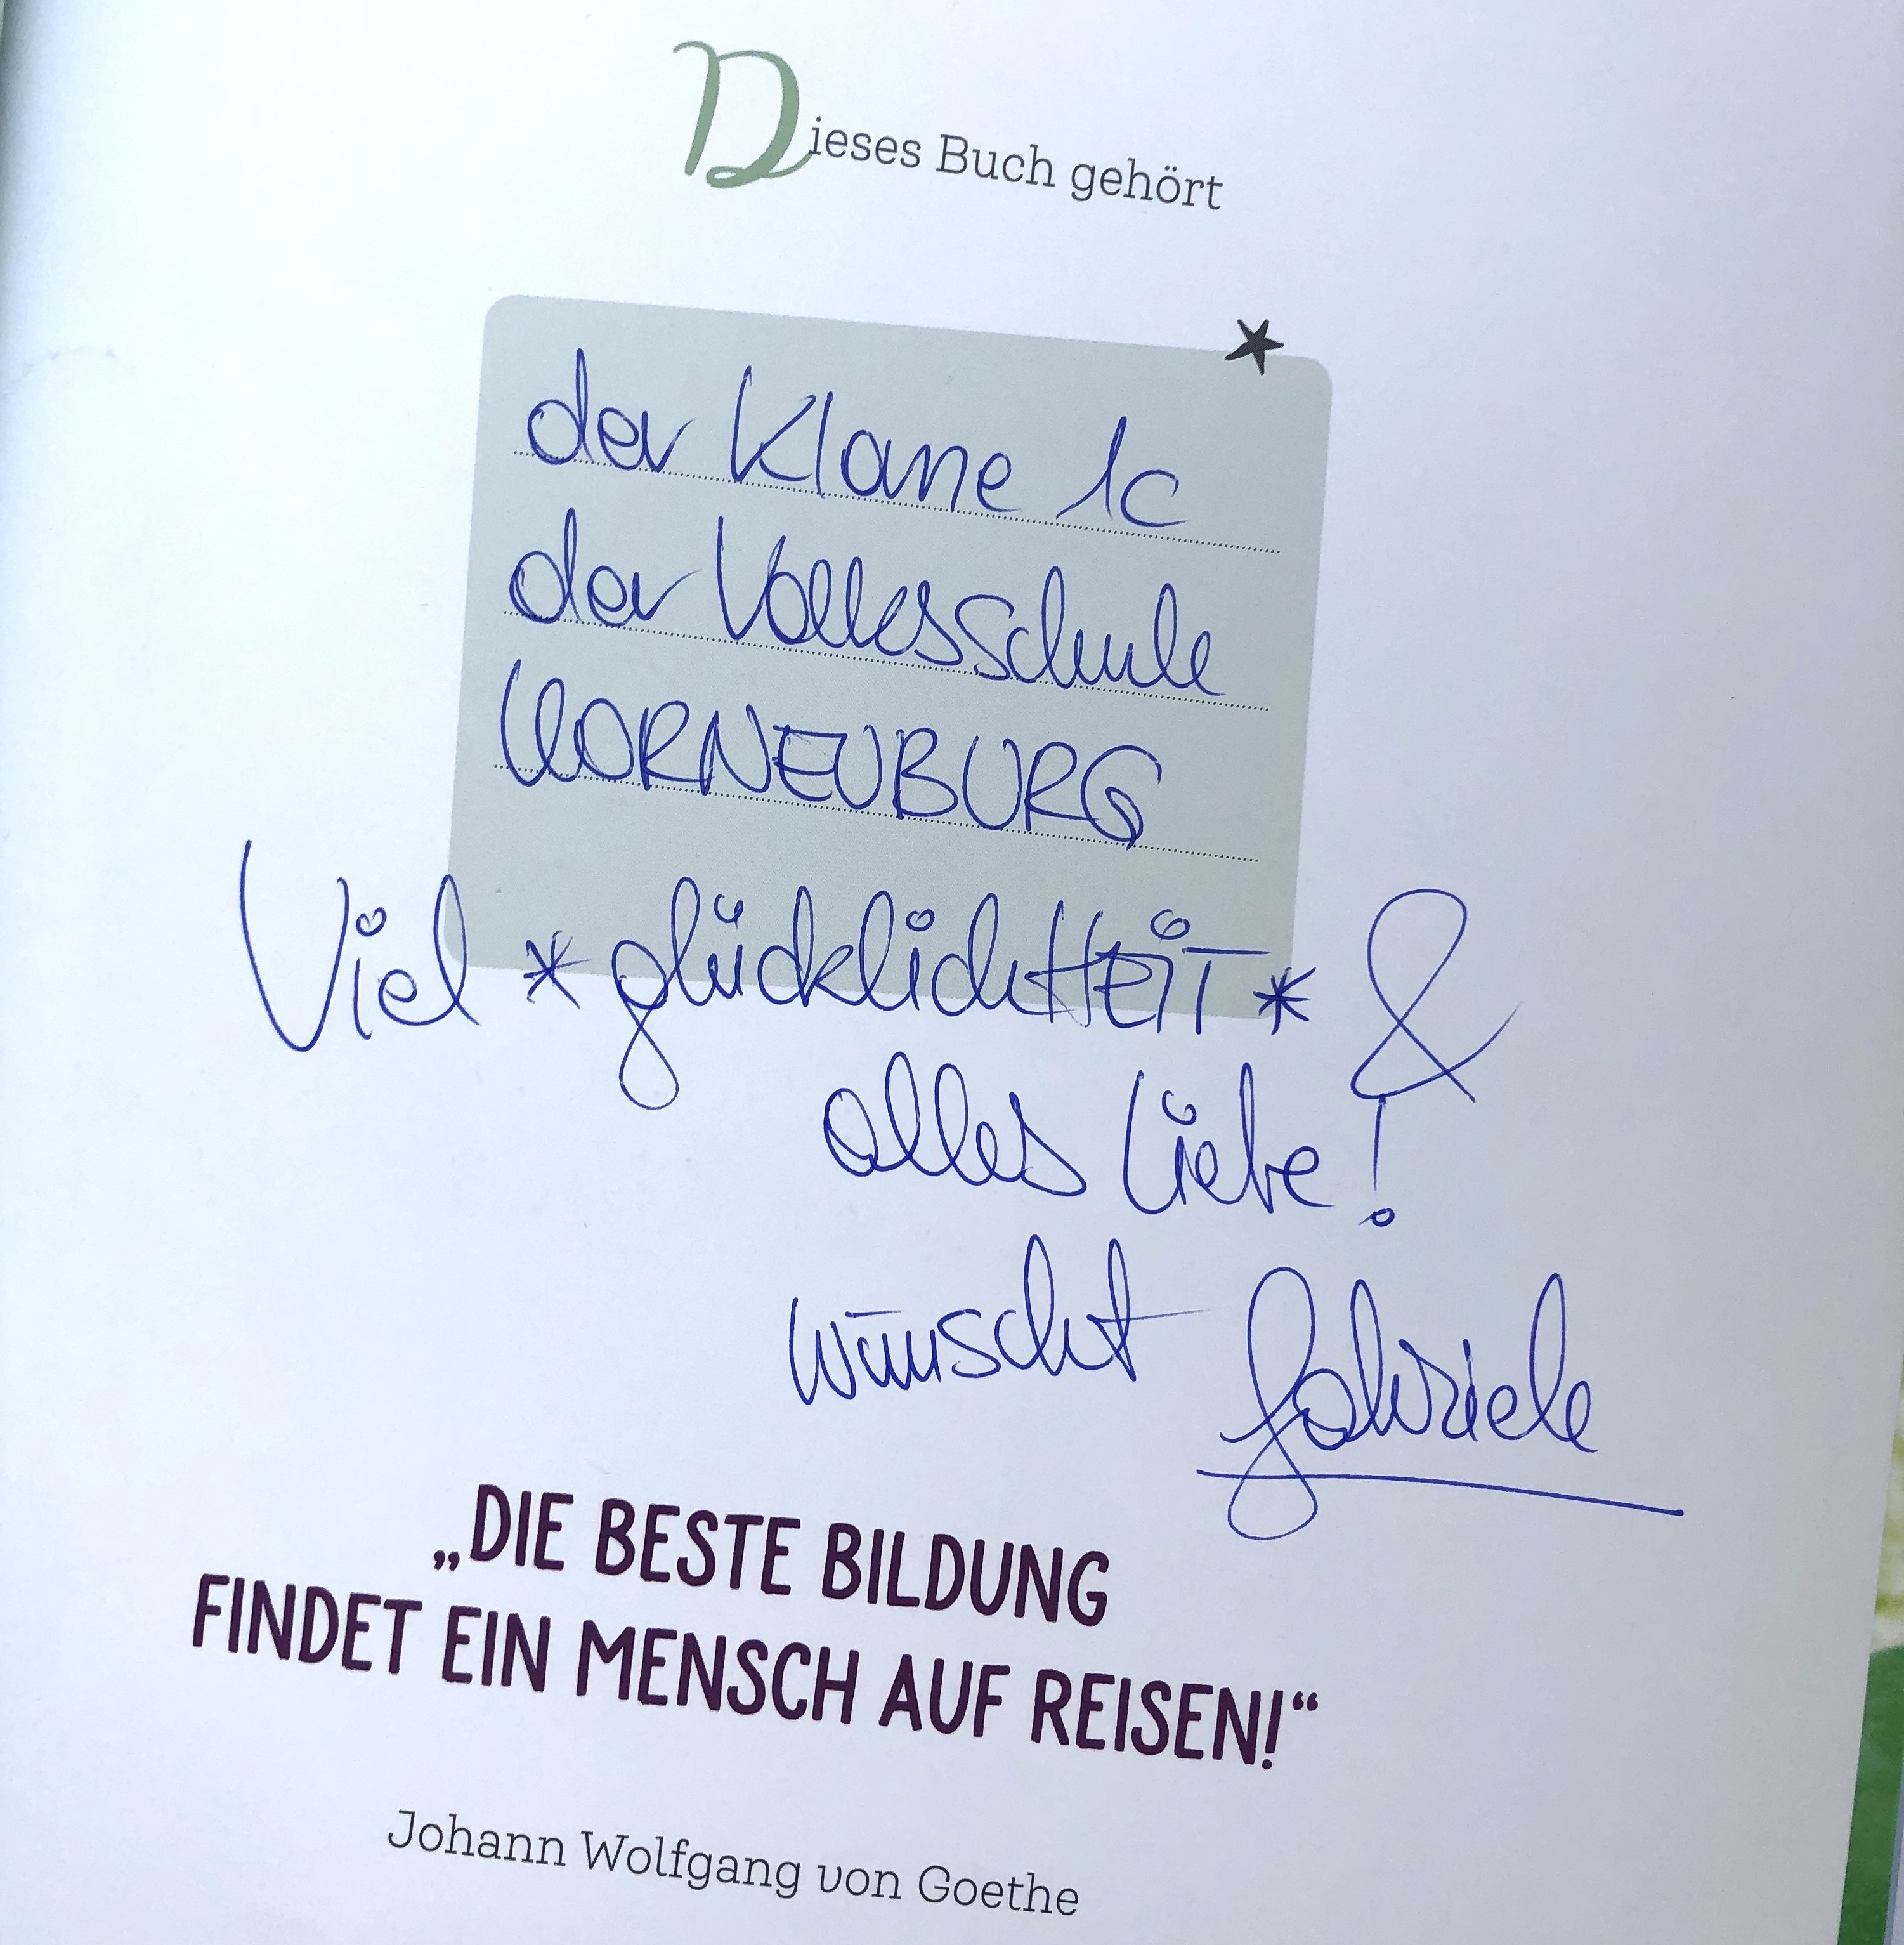 Dieses Buch gehört
der Klasse 1c
der Volksschule
KORNEUBURG
Viel *glücklichHEiT* &
alles Liebe!
wünscht Gabriele
„DIE BESTE BILDUNG
FINDET EIN MENSCH AUF REISEN!“
Johann Wolfgang von Goethe